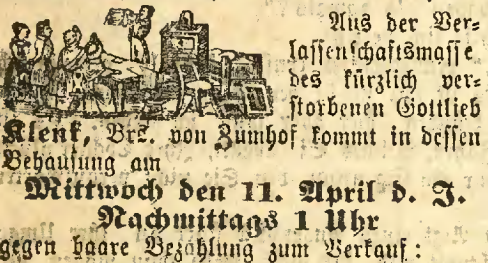 Aus der Ver=
lassenschaftsmasse
des kürzlich ver=
storbenen Gottlieb
Klenk, Brz. von Zumhof kommt in dessen
Behausung am
Mittwoch den 11. April d. J.
Nachmittags 1 Uhr
gegen baare Bezahlung zum Verkauf: